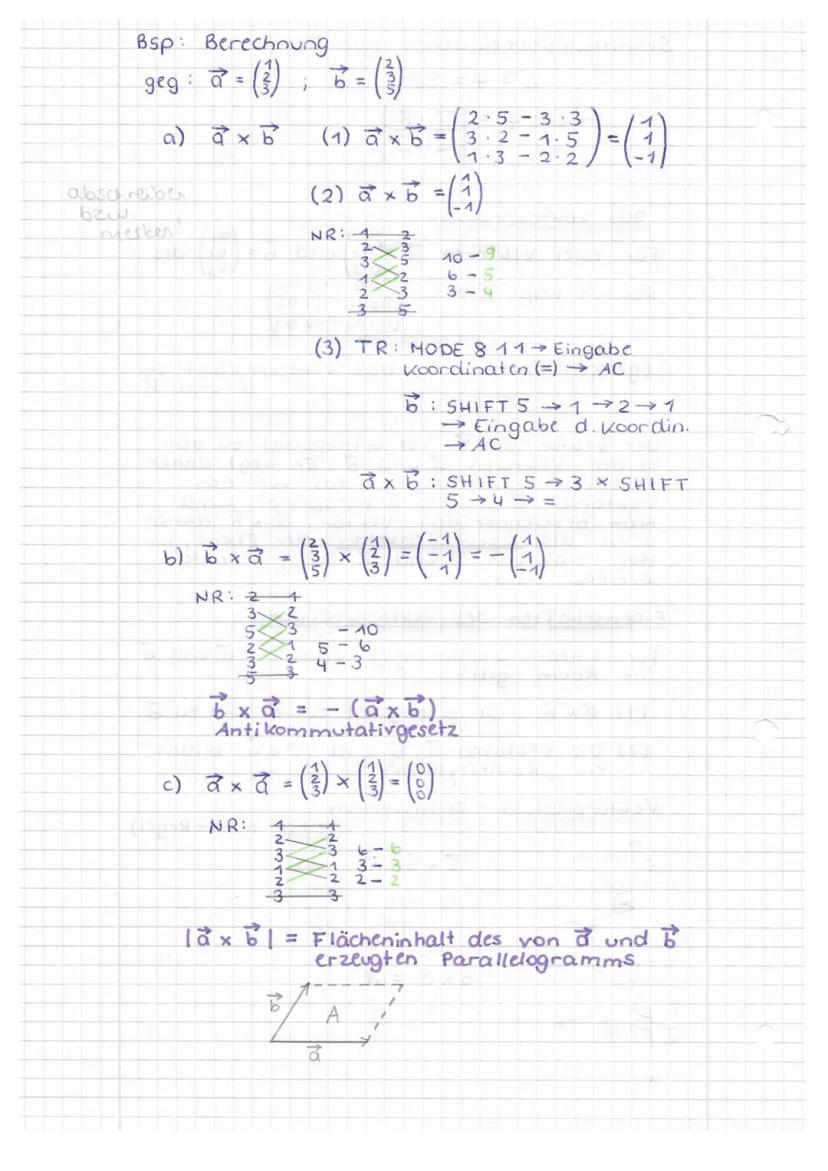 Bsp: Berechnung
geg: a⃗ = (1 2 3) ; b⃗ = (2 3 5)
a) a⃗ × b⃗ (1) a⃗ × b⃗ = (2·5 − 3·3 3·2 − 1·5 1·3 − 2·2) = (1 1 -1)
(2) a⃗ × b⃗ = (1 1 -1)
abschreiben
bzw
merken!
NR: 1 2
2 3
3 5
1 2
2 3
3 5
10 − 9
6 − 5
3 − 4
(3) TR: MODE 8 1 1 → Eingabe
Koordinaten (=) → AC
b⃗ : SHIFT 5 → 1 → 2 → 1
→ Eingabe d. Koordin.
→ AC
a⃗ × b⃗ : SHIFT 5 → 3 × SHIFT
5 → 4 → =
b) b⃗ × a⃗ = (2 3 5) × (1 2 3) = (-1 -1 1) = −(1 1 -1)
NR: 2 1
3 2
5 3
2 1
3 2
5 3
− 10
5 − 6
4 − 3
b⃗ × a⃗ = − (a⃗ × b⃗)
Antikommutativgesetz
c) a⃗ × a⃗ = (1 2 3) × (1 2 3) = (0 0 0)
NR: 1 1
2 2
3 3
1 1
2 2
3 3
6 − 6
3 − 3
2 − 2
|a⃗ × b⃗| = Flächeninhalt des von a⃗ und b⃗
erzeugten Parallelogramms
b⃗
A
a⃗